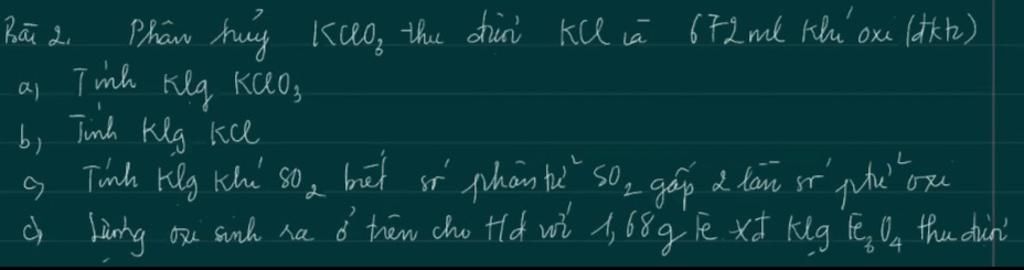 Bài 2. Phân huỷ KClO₃ thu được KCl và 672ml khí oxi (đktc)
a) Tính klg KClO₃
b) Tính klg KCl
c) Tính klg khí SO₂ biết số phân tử SO₂ gấp 2 lần số ptử oxi
d) Lượng oxi sinh ra ở trên cho t/d với 1,68g Fe xđ klg Fe₃O₄ thu được